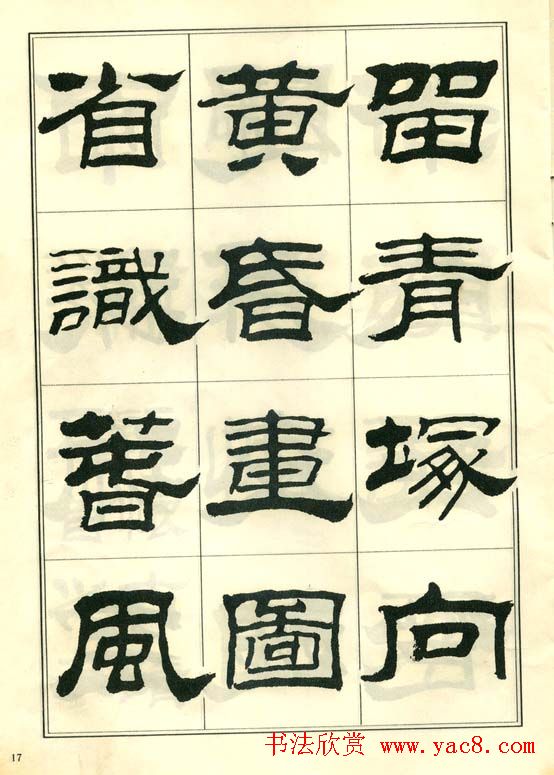 留青塚向
黄昏畫圖
省識春風
17
书法欣赏 www.yac8.com